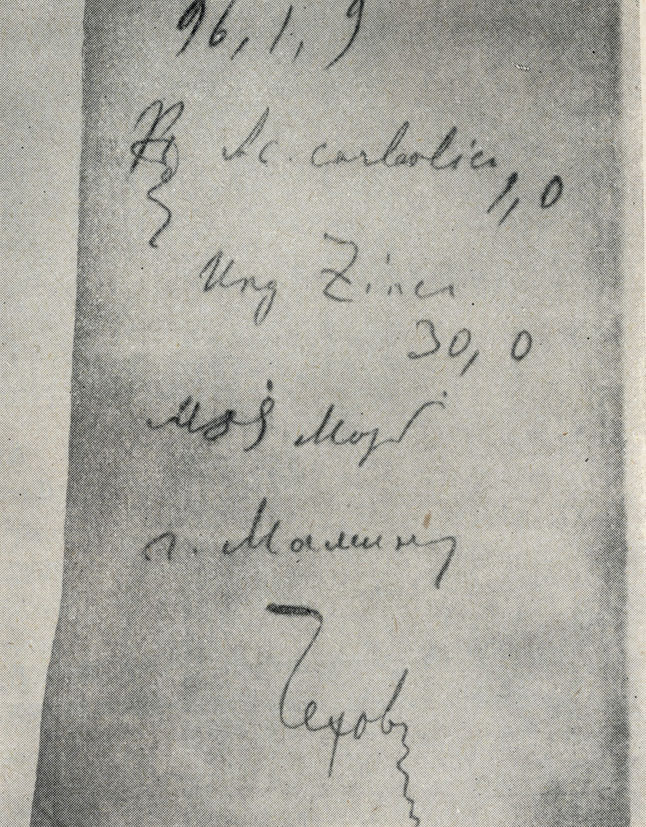 96, 1, 9
Rp Ac. carbolici
1,0
Ung Zinci
30,0
г. Малину
Чеховъ